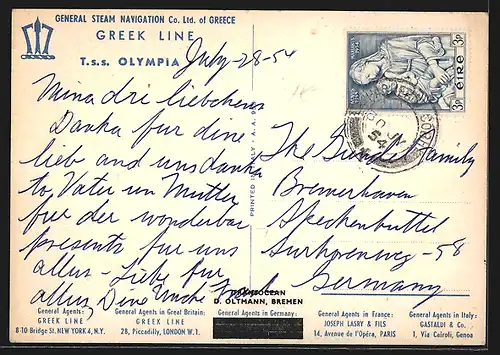 GENERAL STEAM NAVIGATION Co. Ltd. of GREECE
GREEK LINE
T.s.s. OLYMPIA
July-28-54
Mina dri liebchens
Danka fur dine
lieb and uns danka
to Vater un Mutter
fur der wonderbar
presents fur uns
alles - Liebe fur
alles, Dine Unche
PRINTED IN ITALY
The Gunder Family
Bremerhaven
Speckenbuttel
58
Germany
ÉIRE
3p
3p
1954
TRANSOCEAN
D. OLTMANN, BREMEN
General Agents:
GREEK LINE
8-10 Bridge St. NEW YORK 4, N.Y.
General Agents in Great Britain:
GREEK LINE
28, Piccadilly, LONDON W. 1.
General Agents in Germany:
General Agents in France:
JOSEPH LASRY & FILS
14, Avenue de l'Opéra, PARIS
General Agents in Italy:
GASTALDI & Co.
1, Via Cairoli, Genoa